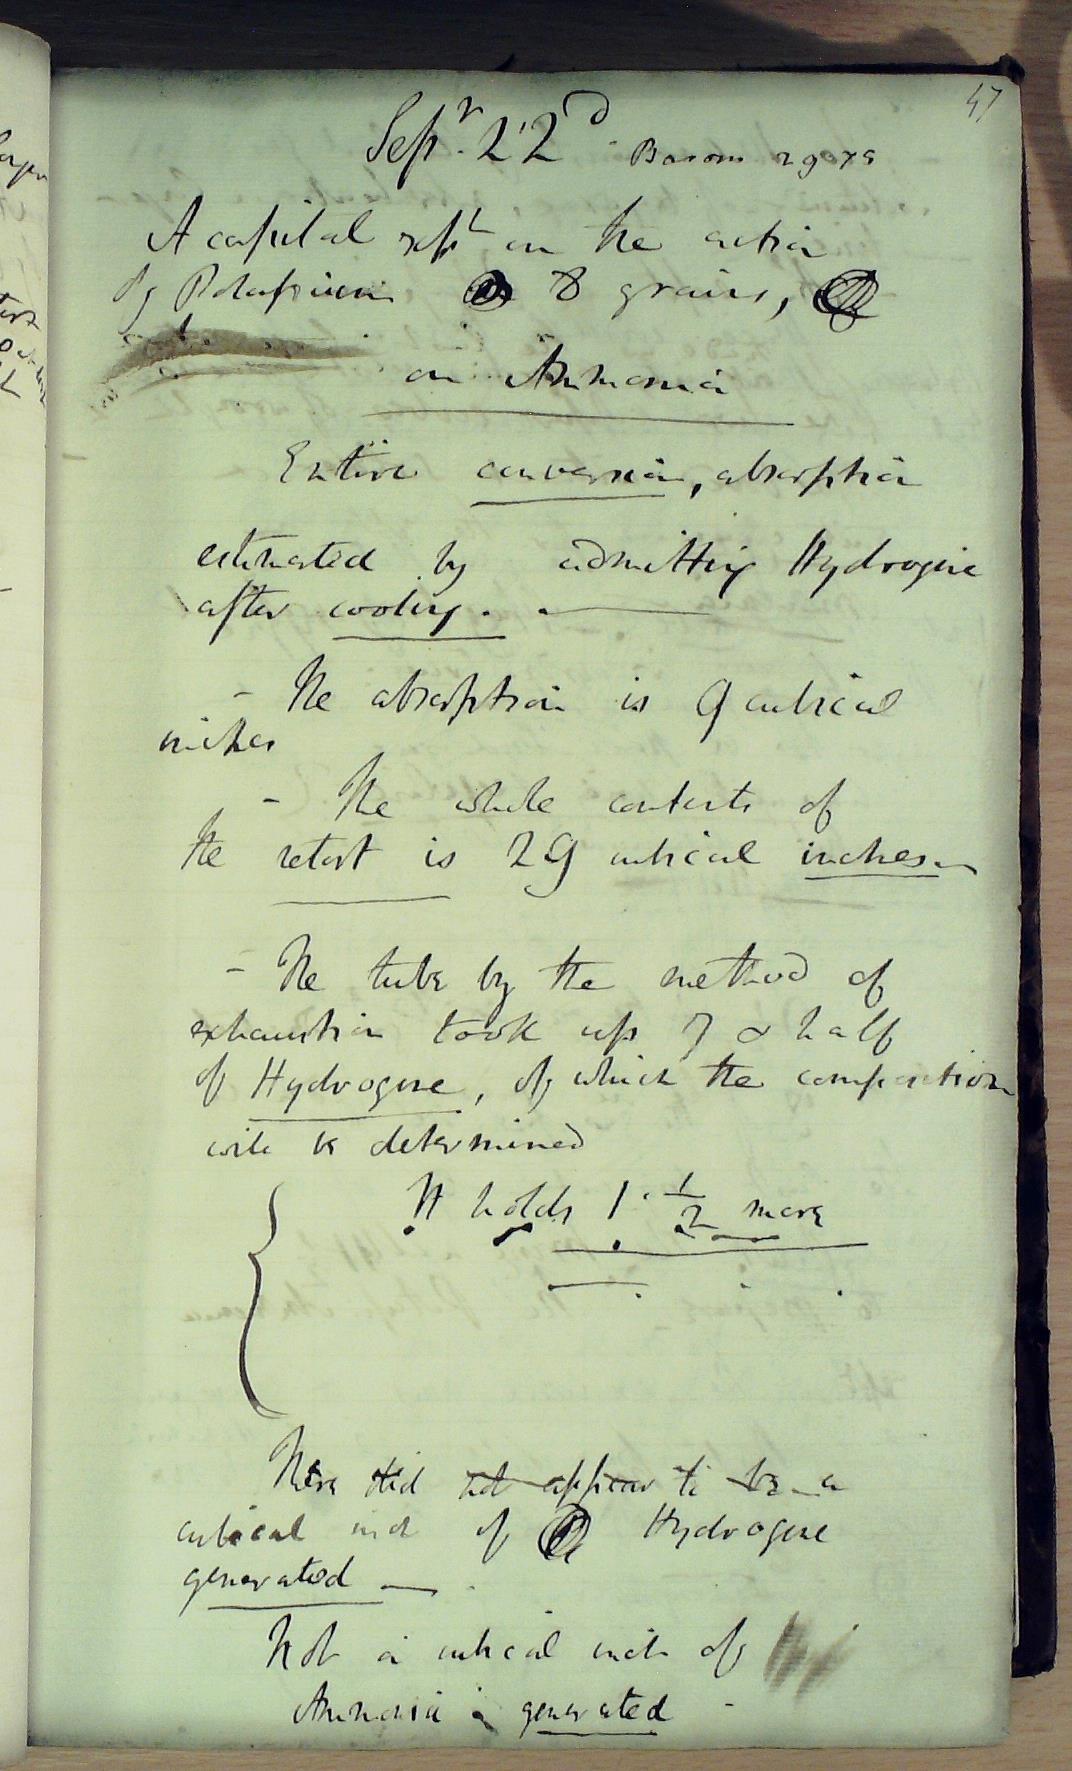 47
Sepr. 22d Barom 29 75
A capital expt on the action
of Potassium 8 grains,
on Ammonia
Entire conversion, absorption
estimated by admitting Hydrogene
after cooling.
- The absorption is 9 cubical
inches
- The whole contents of
the retort is 29 cubical inches
- The tube by the method of
exhaustion took up 7 & half
of Hydrogene, of which the composition
will be determined
It holds 1 1/2 more
There did not appear to be a
cubical inch of Hydrogene
generated
Not a cubical inch of
Ammonia is generated